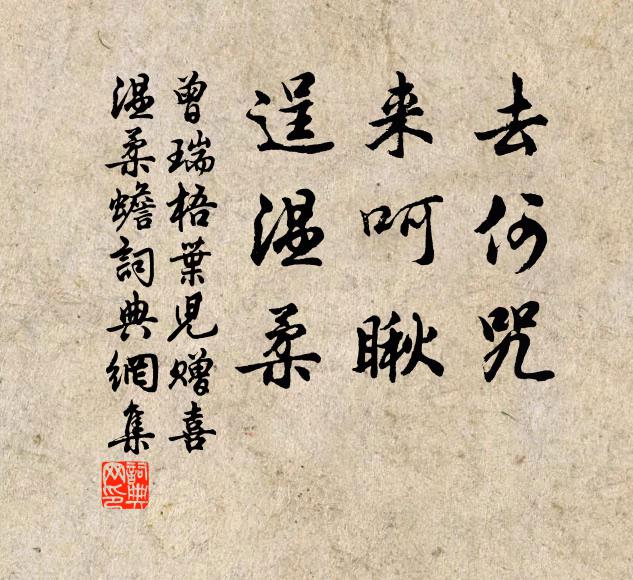 去何咒
来呵瞅
逞温柔
曾瑞梧葉児贈喜
温柔蟾詞典網集
詞典网印